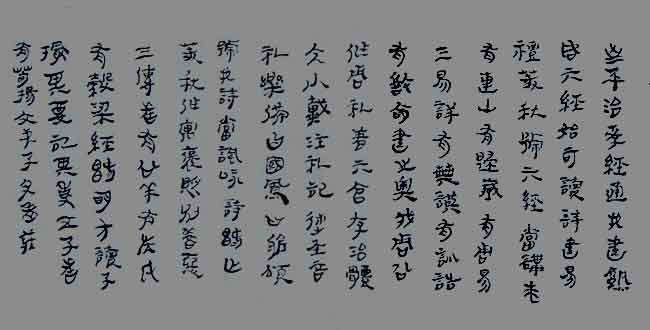 至平治孝經通四書熟
如六經始可讀詩書易
禮春秋號六經當講求
有連山有歸藏有周易
三易詳有典謨有訓誥
有誓命書之奧我周公
作周礼著六官存治體
大小戴注礼記述聖言
礼樂備曰國風曰雅頌
號四詩當諷詠詩既亡
春秋作寓褒貶別善惡
三傳者有公羊有左氏
有穀梁經既明方讀子
撮其要記其事五子者
有荀揚文中子及老莊